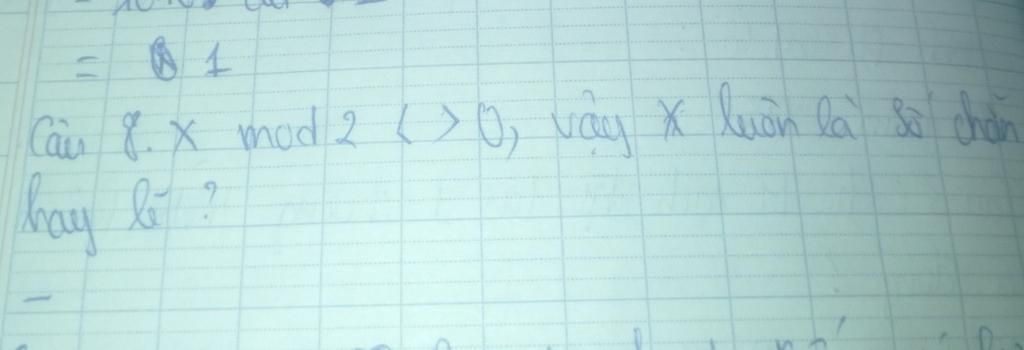 = 1
Câu 8. X mod 2 < > 0, vậy X luôn là số chẵn
hay lẻ ?
-